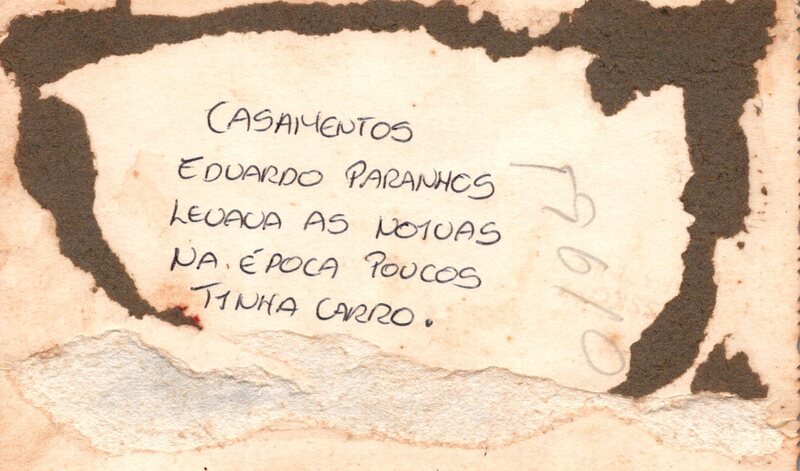 CASAMENTOS
EDUARDO PARANHOS
LEVAVA AS NOIVAS
NA ÉPOCA POUCOS
TINHA CARRO.